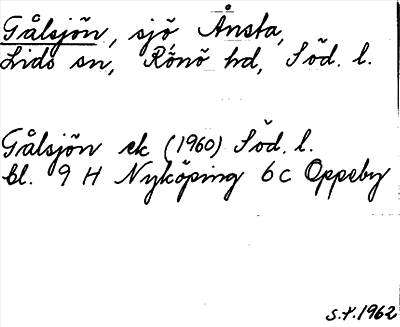 Gålsjön, sjö Ånsta,
Lids sn, Rönö hd, Söd. l.
Gålsjön ek (1960) Söd. l.
bl. 9 H Nyköping 6c Oppeby
s.t.1962